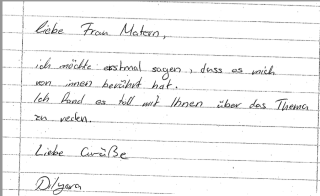 Liebe Frau Matern,
ich möchte erstmal sagen, dass es mich
von innen berührt hat.
Ich fand es toll mit Ihnen über das Thema
zu reden.
Liebe Grüße
Dilyara